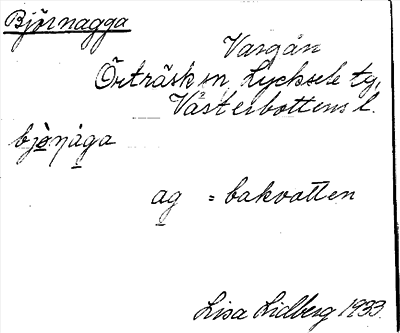 Björnagga
Vargån
Örträsk sn, Lycksele tg,
Västerbottens l.
bjò̱ŋàga
a̱g = bakvatten
Lisa Lidberg 1933.